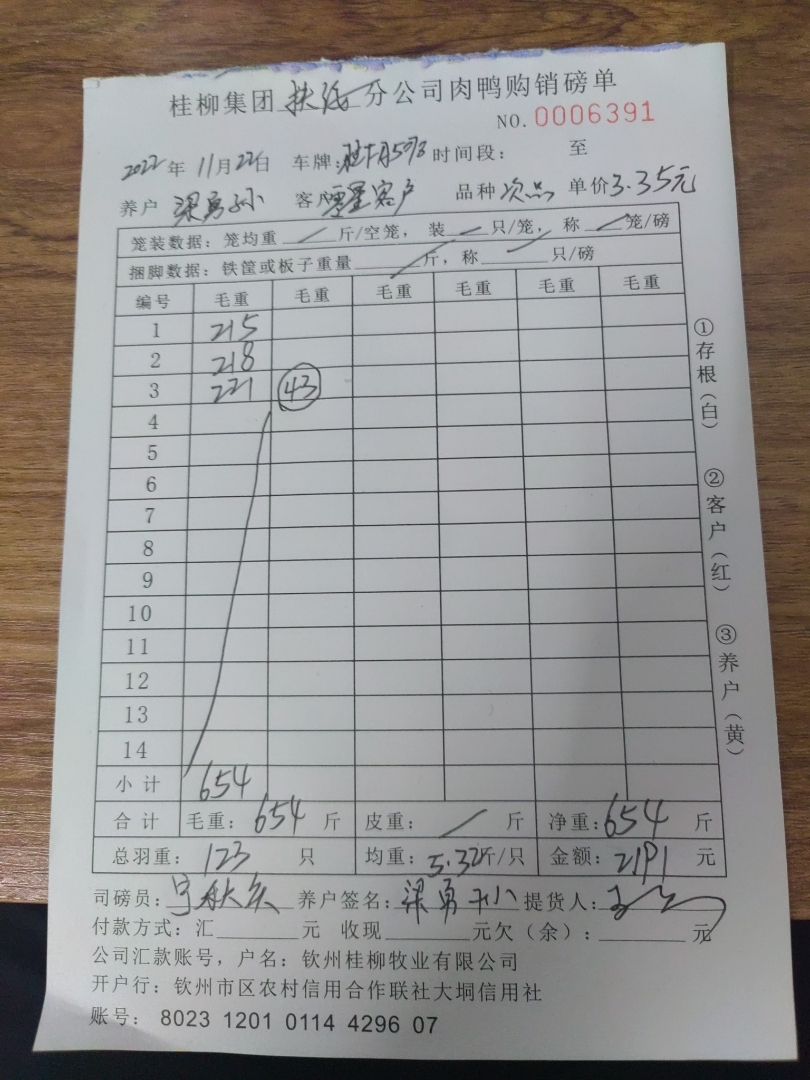 桂柳集团扶绥分公司肉鸭购销磅单
NO.0006391
2022年11月22日 车牌: 时间段: 至
养户 梁勇孙 客户零星客户 品种 次品 单价3.35元
笼装数据: 笼均重 / 斤/空笼, 装 / 只/笼, 称 / 笼/磅
捆脚数据: 铁筐或板子重量 / 斤, 称 / 只/磅
编号 毛重 毛重 毛重 毛重 毛重 毛重
1 215
2 218
3 221 43
4
5
6
7
8
9
10
11
12
13
14
小计 654
合计 毛重: 654 斤 皮重: / 斤 净重:654 斤
总羽重: 123 只 均重: 5.32斤/只 金额: 2191 元
司磅员: 养户签名: 梁勇孙 提货人:
付款方式: 汇 元 收现 元欠(余): 元
公司汇款账号, 户名: 钦州桂柳牧业有限公司
开户行: 钦州市区农村信用合作联社大垌信用社
账号: 8023 1201 0114 4296 07
①存根(白)
②客户(红)
③养户(黄)